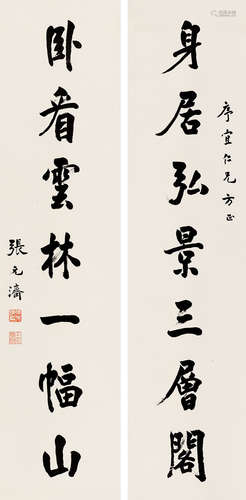 序宜仁兄方正
身居弘景三層閣
卧看雲林一幅山
張元濟